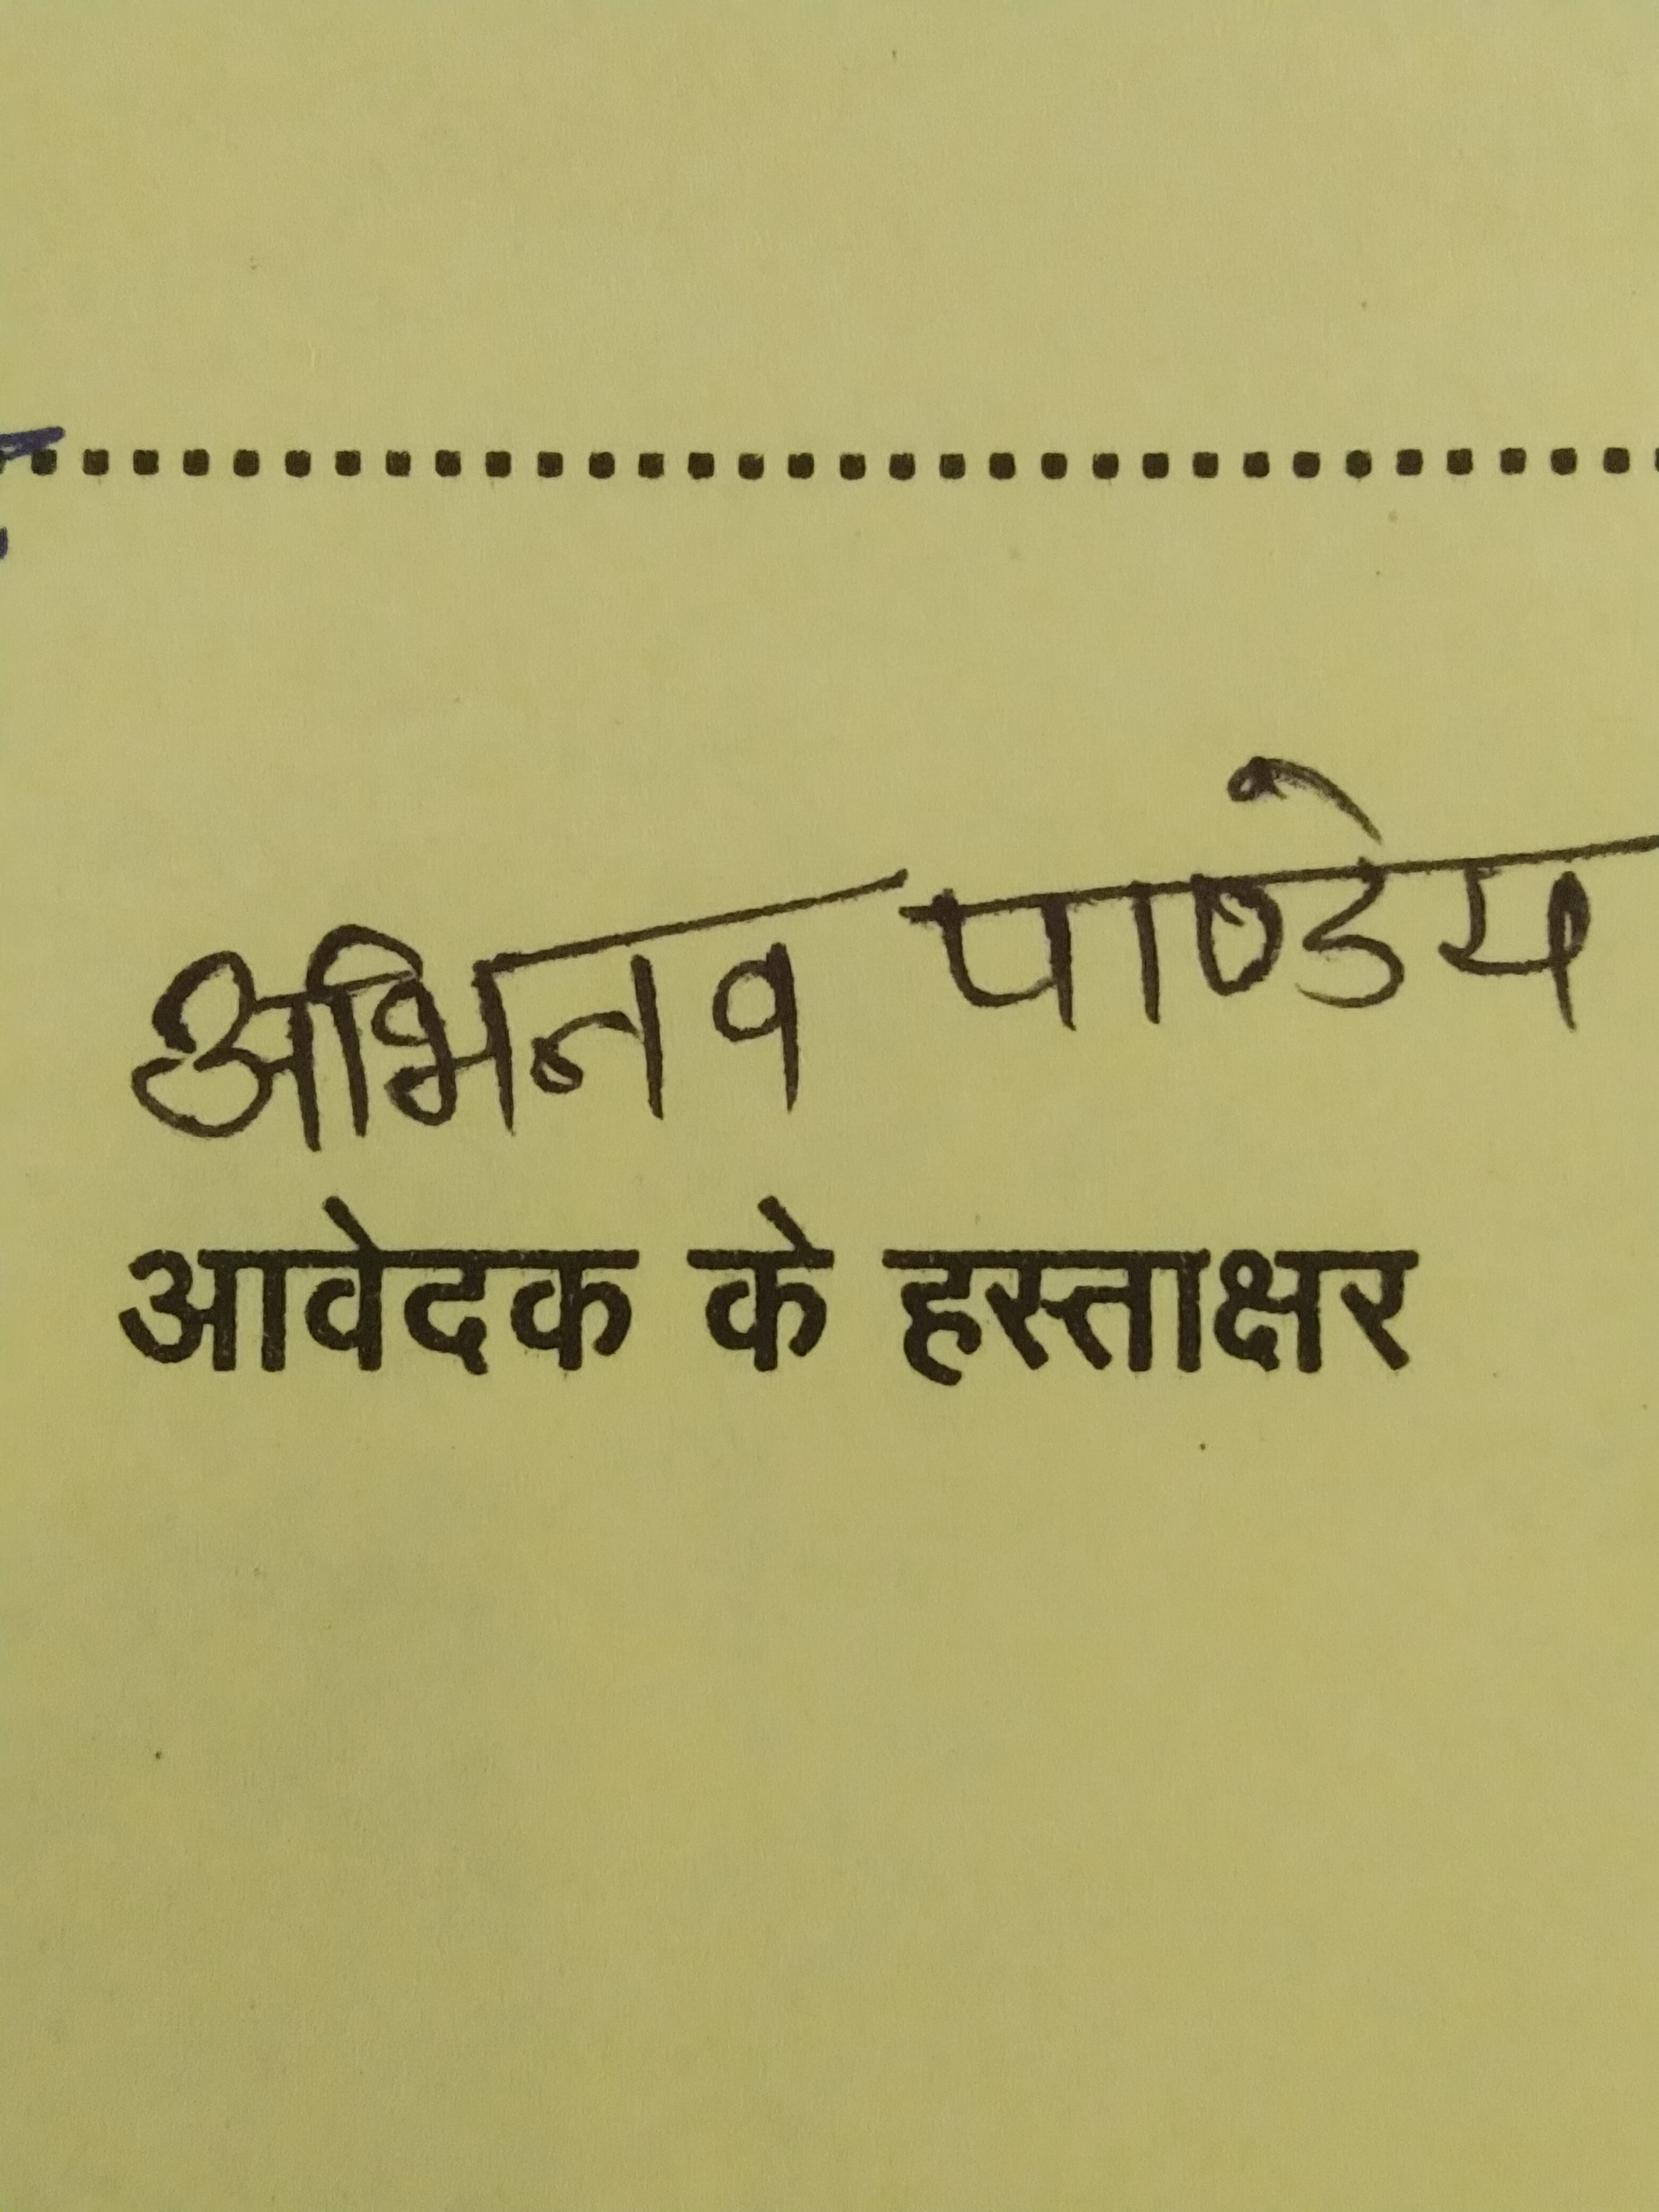 अभिनव पाण्डेय
आवेदक के हस्ताक्षर